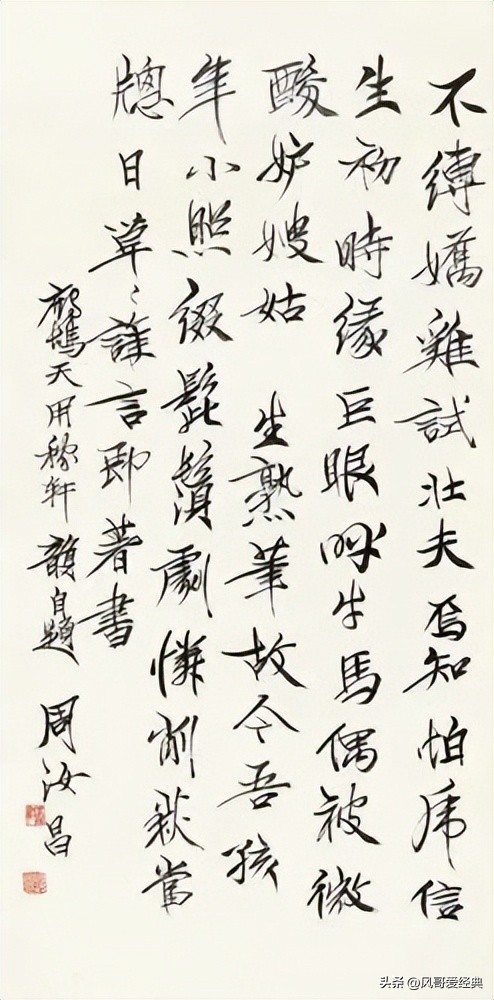 不縛嬌雞試壯夫焉知怕虎信
生初時緣巨眼呼牛馬偶被微
酸妒嫂姑 生熟筆故今吾孩
年小照綴髭鬚劇憐削荻當
牕日草〻謹言即著書
鷓鴣天用稼軒韻自題 周汝昌
头条 @风哥爱经典